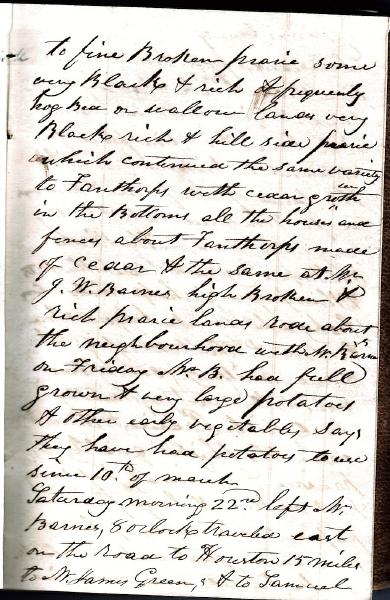 to fine Broken prairie some
very Black & rich & frequently
hog Bed or wallow lands very
Black rich & hill side prairie
which continued the same variety
to Fanthorps with cedar groth
in the Bottoms all the houses and and
fences about Fanthorps made
of cedar & the same at Mr
J. W. Barnes high Broken &
rich prairie lands rode about
the neighbourhood with Mr Barnes
on Friday Mr B. had full
grown & very large potatoes
& other early vegetables says
they have had potatoes to use
since 10th of march
Saturday morning 22nd left Mr
Barnes, 8 oclock traveled east
on the road to Houston 15 miles
to Mr James Green,s & to Samuel